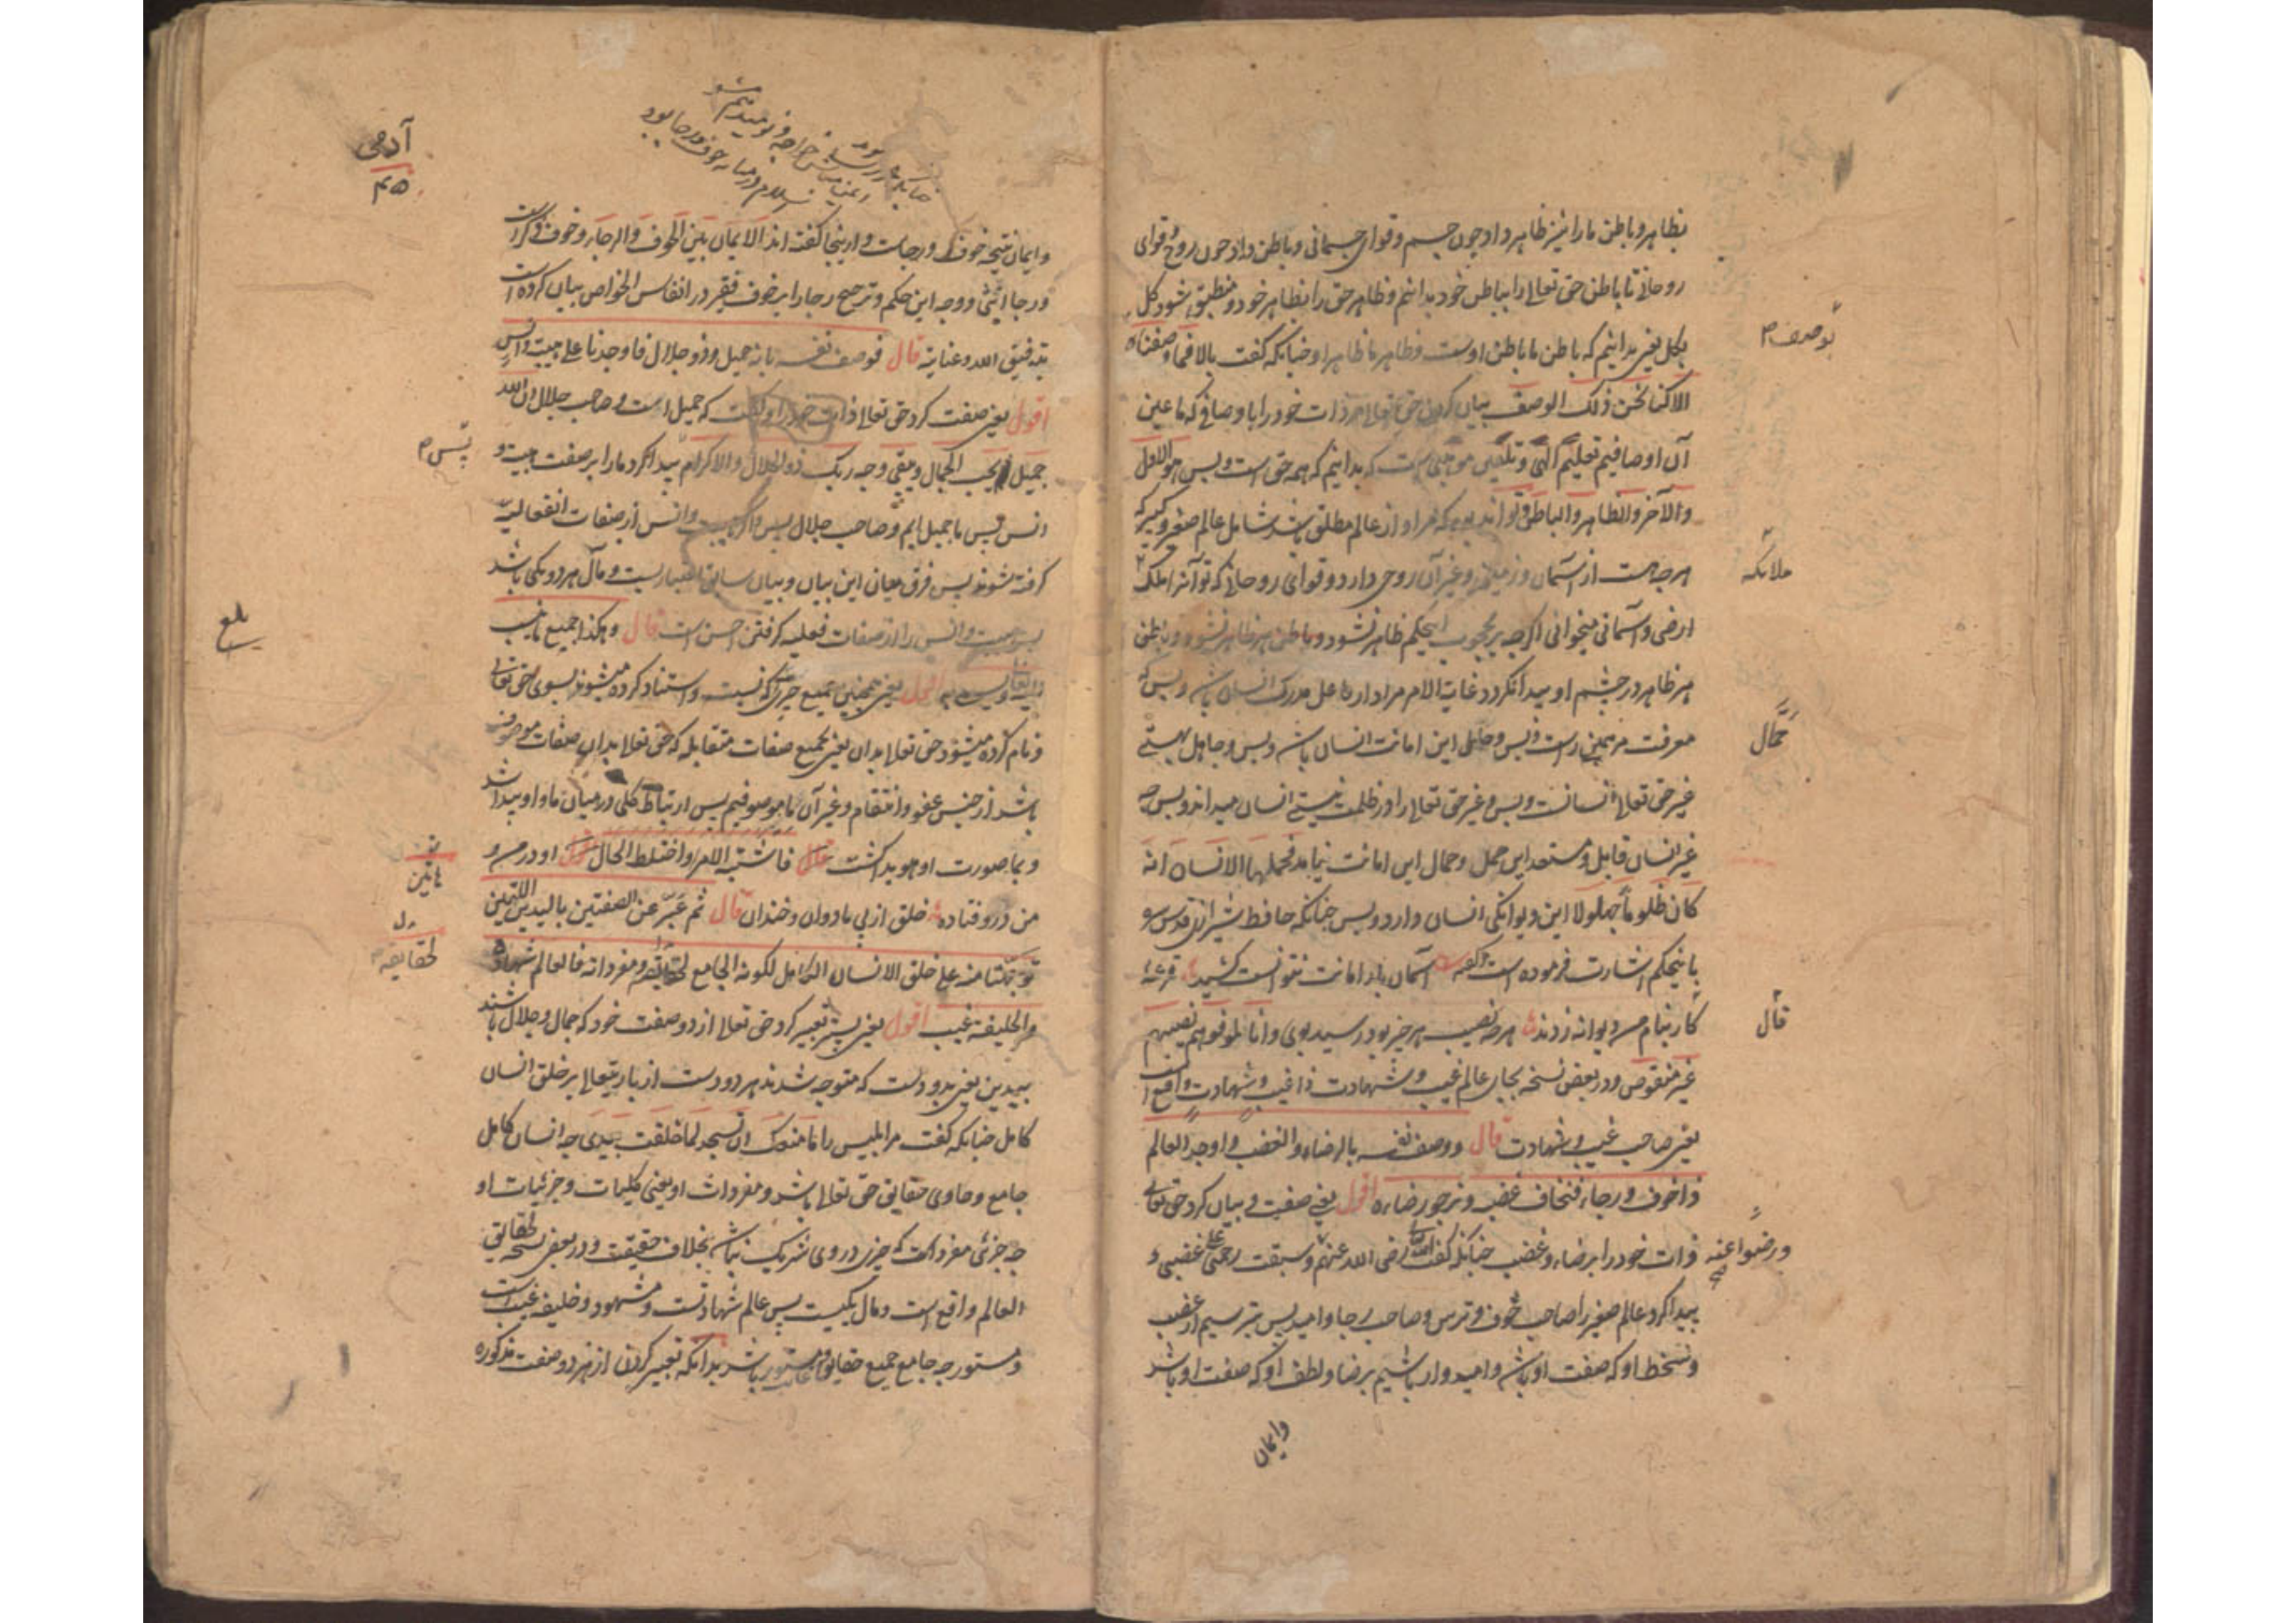 بظاهر و باطن ما را نیز ظاهر داد چون جسم و قوای جسمانی و باطن داد چون روح و قوای
روحانی تا باطن حق تعالی را بباطن خود بدانیم و ظاهر حق را بظاهر خود و منطبق شود کل
بکل یعنی بدانیم که باطن ما باطن اوست و ظاهر ما ظاهر او چنانکه گفت بالا فما وصفناه
بوصف
الا کنا نحن ذلک الوصف بیان کردن حق تعالی مر ذات خود را باوصافی که ما عین
آن اوصافیم تعلیم الهی و تلقین است که بدانیم که همه حق است و بس هو الاول
والآخر والظاهر والباطن و تواند بود که مراد از عالم مطلق باشد شامل عالم صغیر و کبیر که
هر چه هست از آسمان و زمین و غیر آن روحی دارد و قوای روحانی که تو آنرا ملک
ملائکه
ارضی و آسمانی میخوانی اگرچه بر محجوب اینحکم ظاهر نشود و باطن بر ظاهر نشود
بر ظاهر در چشم او پیدا نگردد غایة الامر مراد ادراک مدرک انسان باشد و بس که
معرفت مر همین راست و بس و حامل این امانت انسان باشد و بس و جاهل بهستی
حمّال
غیر حق تعالی انسانست و بس و غیر حق تعالی را در ظلمت نیستی انسان میداند و بس چه
غیر انسان قابل و مستعد این حمل و حمال این امانت نیامد فحملها الانسان انه
کان ظلوما جهولا این دیوانگی انسان دارد و بس چنانکه حافظ شیرازی قدس سره
باینحکم اشارت فرموده است آسمان بار امانت نتوانست کشید قرعهٔ
کار بنام من دیوانه زدند هر چه نصیب هر چیز بود رسید بوی وانا لموفوهم نصیبهم
فال
غیر منقوص و در بعض نسخه بجای عالم غیب و شهادت ذا غیب و شهادت واقع است
یعنی صاحب غیب و شهادت قال و وصف نفسه بالرضاء والغضب واوجد العالم
ذا خوف و رجاء فنخاف غضبه و نرجو رضاءه اقول یعنی صفت و بیان کرد حق تعالی
ذات خود را برضاء و غضب چنانکه گفت رضی الله عنهم و سبقت رحمتی علی غضبی و
ورضوا عنه
پیدا کرد عالم صغیر را صاحب خوف و ترس و صاحب رجا و امید پس بترسیم از غضب
و سخط او که صفت او باشد و امیدوار باشیم برضا و لطف او که صفت او باشد
وایمان
آدمی
۴۵
وایمان نتیجه خوف و رجاست و از ینجا گفته اند الایمان بین الخوف والرجاء و خوف ذکر است
و رجا انثی و وجه این حکم و ترجیح رجا را بر خوف فقیر در انفاس الخواص بیان کرده است
بتوفیق الله و عنایته قال فوصف نفسه بانه جمیل و ذو جلال فاوجدنا علی هیبت وانس
اقول یعنی صفت کرد حق تعالی ذات خود را و گفت که جمیل است و صاحب جلال ان الله
جمیل یحب الجمال و یبقی وجه ربک ذو الجلال والاکرام پیدا کرد ما را بر صفت هیبت و
پس
انس پس ما جمیل ایم و صاحب جلال پس اگر هیبت و انس از صفات انفعالیه
گرفته شوند پس فرق میان این بیان و بیان سابق باعتبار است و مآل هر دو یکی باشد
هیبت و انس را از صفات فعلیه گرفتن احسن است قال و هکذا جمیع ما ینسب
بلغ
الیه تعالی و یسمی به اقول یعنی همچنین جمیع چیزی که نسبت و استناد کرده میشوند بسوی حق تعالی
و نام کرده میشود حق تعالی بدان یعنی بجمیع صفات متقابله که حق تعالی بدان صفات موصوف
باشد از جنس عفو و انتقام و غیر آن ما موصوفیم پس ارتباط کلی در میان ما و او پیدا شد
و بما صورت او هویدا گشت فاشتبه الامر و اختلط الحال او در من و
من در و فتاده خلق از پی ما دوان و خندان قال ثم عبّر عن الصفتین بالیدین اللتین
هاتین
توجّهتا منه علی خلق الانسان الکامل لکونه الجامع لحقائق و مفرداته فالعالم شهادة
لحقایقه
والخلیفة غیب اقول یعنی پستر تعبیر کرد حق تعالی از دو صفت خود که جمال و جلال باشند
بیدین یعنی بدو دست که متوجه شدند هر دو دست از باریتعالی بر خلق انسان
کامل چنانکه گفت مر ابلیس را ما منعک ان تسجد لما خلقت بیدی چه انسان کامل
جامع و حاوی حقایق حق تعالی باشد و مفردات او یعنی کلیات و جزئیات او
چه جزئی مفرد است که چیزی در وی شریک نباشد بخلاف حقیقت و در بعض نسخه لحقائق
العالم واقع است و مآل یکیست پس عالم شهادتست و مشهود و خلیفه غیب است
و مستور چه جامع جمیع حقایق مستور باشد بدانکه تعبیر کردن از هر دو صفت مذکوره